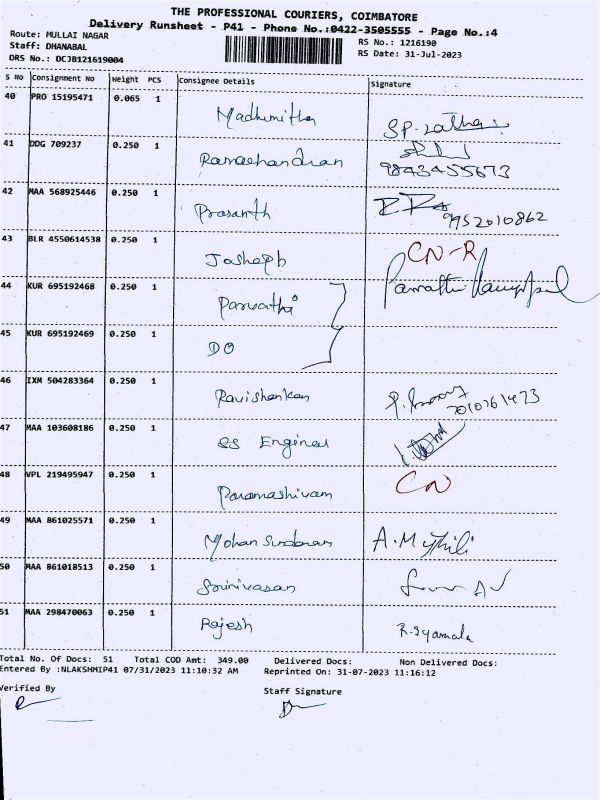 THE PROFESSIONAL COURIERS, COIMBATORE
Delivery Runsheet - P41 - Phone No.:0422-3505555 - Page No.:4
Route: MULLAI NAGAR RS No.: 1216190
Staff: DHANABAL RS Date: 31-Jul-2023
DRS No.: DCJB121619004
S NO Consignment No Weight PCS Consignee Details Signature
40 PRO 15195471 0.065 1 Madhumitha SP.
41 DDG 709237 0.250 1 Ramachandran 9843455673
42 MAA 568925446 0.250 1 Prasanth 9952010862
43 BLR 4550614538 0.250 1 Joshaph CN-R
44 KUR 695192468 0.250 1 Parvathi
45 KUR 695192469 0.250 1 DO
46 IXM 504283364 0.250 1 Ravishankar
47 MAA 103608186 0.250 1 Engineer
48 VPL 219495947 0.250 1 Paramashivam CN
49 MAA 861025571 0.250 1 Mohan Sundaram A.Mythili
50 MAA 861018513 0.250 1 Srinivasan
51 MAA 298470063 0.250 1 Rajesh R.Syamala
Total No. Of Docs: 51 Total COD Amt: 349.00 Delivered Docs: Non Delivered Docs:
Entered By :NLAKSHMIP41 07/31/2023 11:10:32 AM Reprinted On: 31-07-2023 11:16:12
Verified By Staff Signature